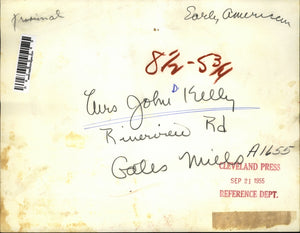 Early American
8½ - 5¾
Mrs John D Kelly
Riverview Rd
Gates Mills
A1655
CLEVELAND PRESS
SEP 21 1955
REFERENCE DEPT.